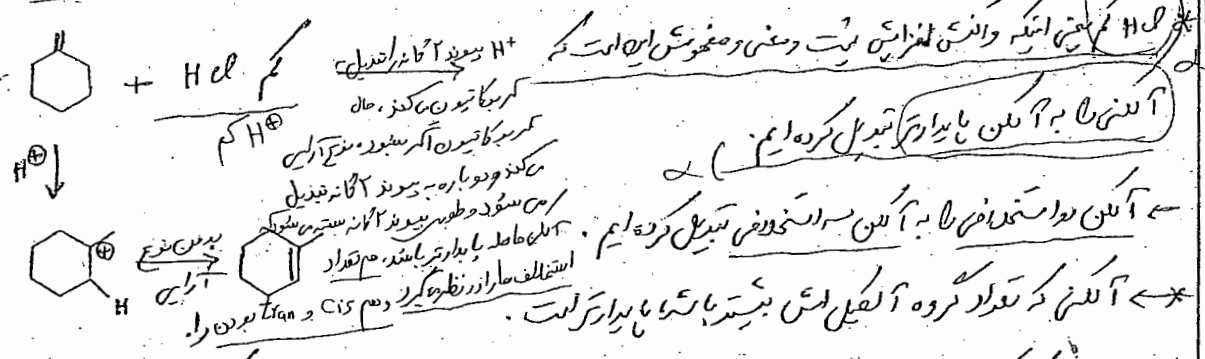 * HCl کم یعنی اینکه واکنش افزایشی نیست و معنی و مفهومش این است که
آلکنی را به آلکن پایدارتر تبدیل کرده ایم.
← آلکن دو استخلافی را به آلکن سه استخلافی تبدیل کرده ایم.
*← آلکنی که تعداد گروه آلکیل اش بیشتر باشد، پایدارتر است.
+ HCl کم
H⊕ کم
H+ پیوند ۲ گانه را تبدیل به
کربوکاتیون می کند، حال
کربوکاتیون اگر بشود، نوع آرایی
می کند و دوباره به پیوند ۲ گانه تبدیل
می شود و طوری پیوند ۲ گانه بسته می شود که
آلکن حاصله پایدارتر باشد، هم تعداد
استخلاف ها را در نظر می گیرد و هم Cis و Tran بودن را.
H⊕
⊕
H
بدون نوع
آرایی